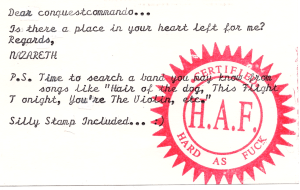 Dear conquestcommando...
Is there a place in your heart left for me?
Regards,
NAZARETH
P.S. Time to search a band you may know from
songs like "Hair of the dog, This Flight
T onight, You're The Violin, etc."
Silly Stamp Included... :)
CERTIFIED
H.A.F.
HARD AS FUCK